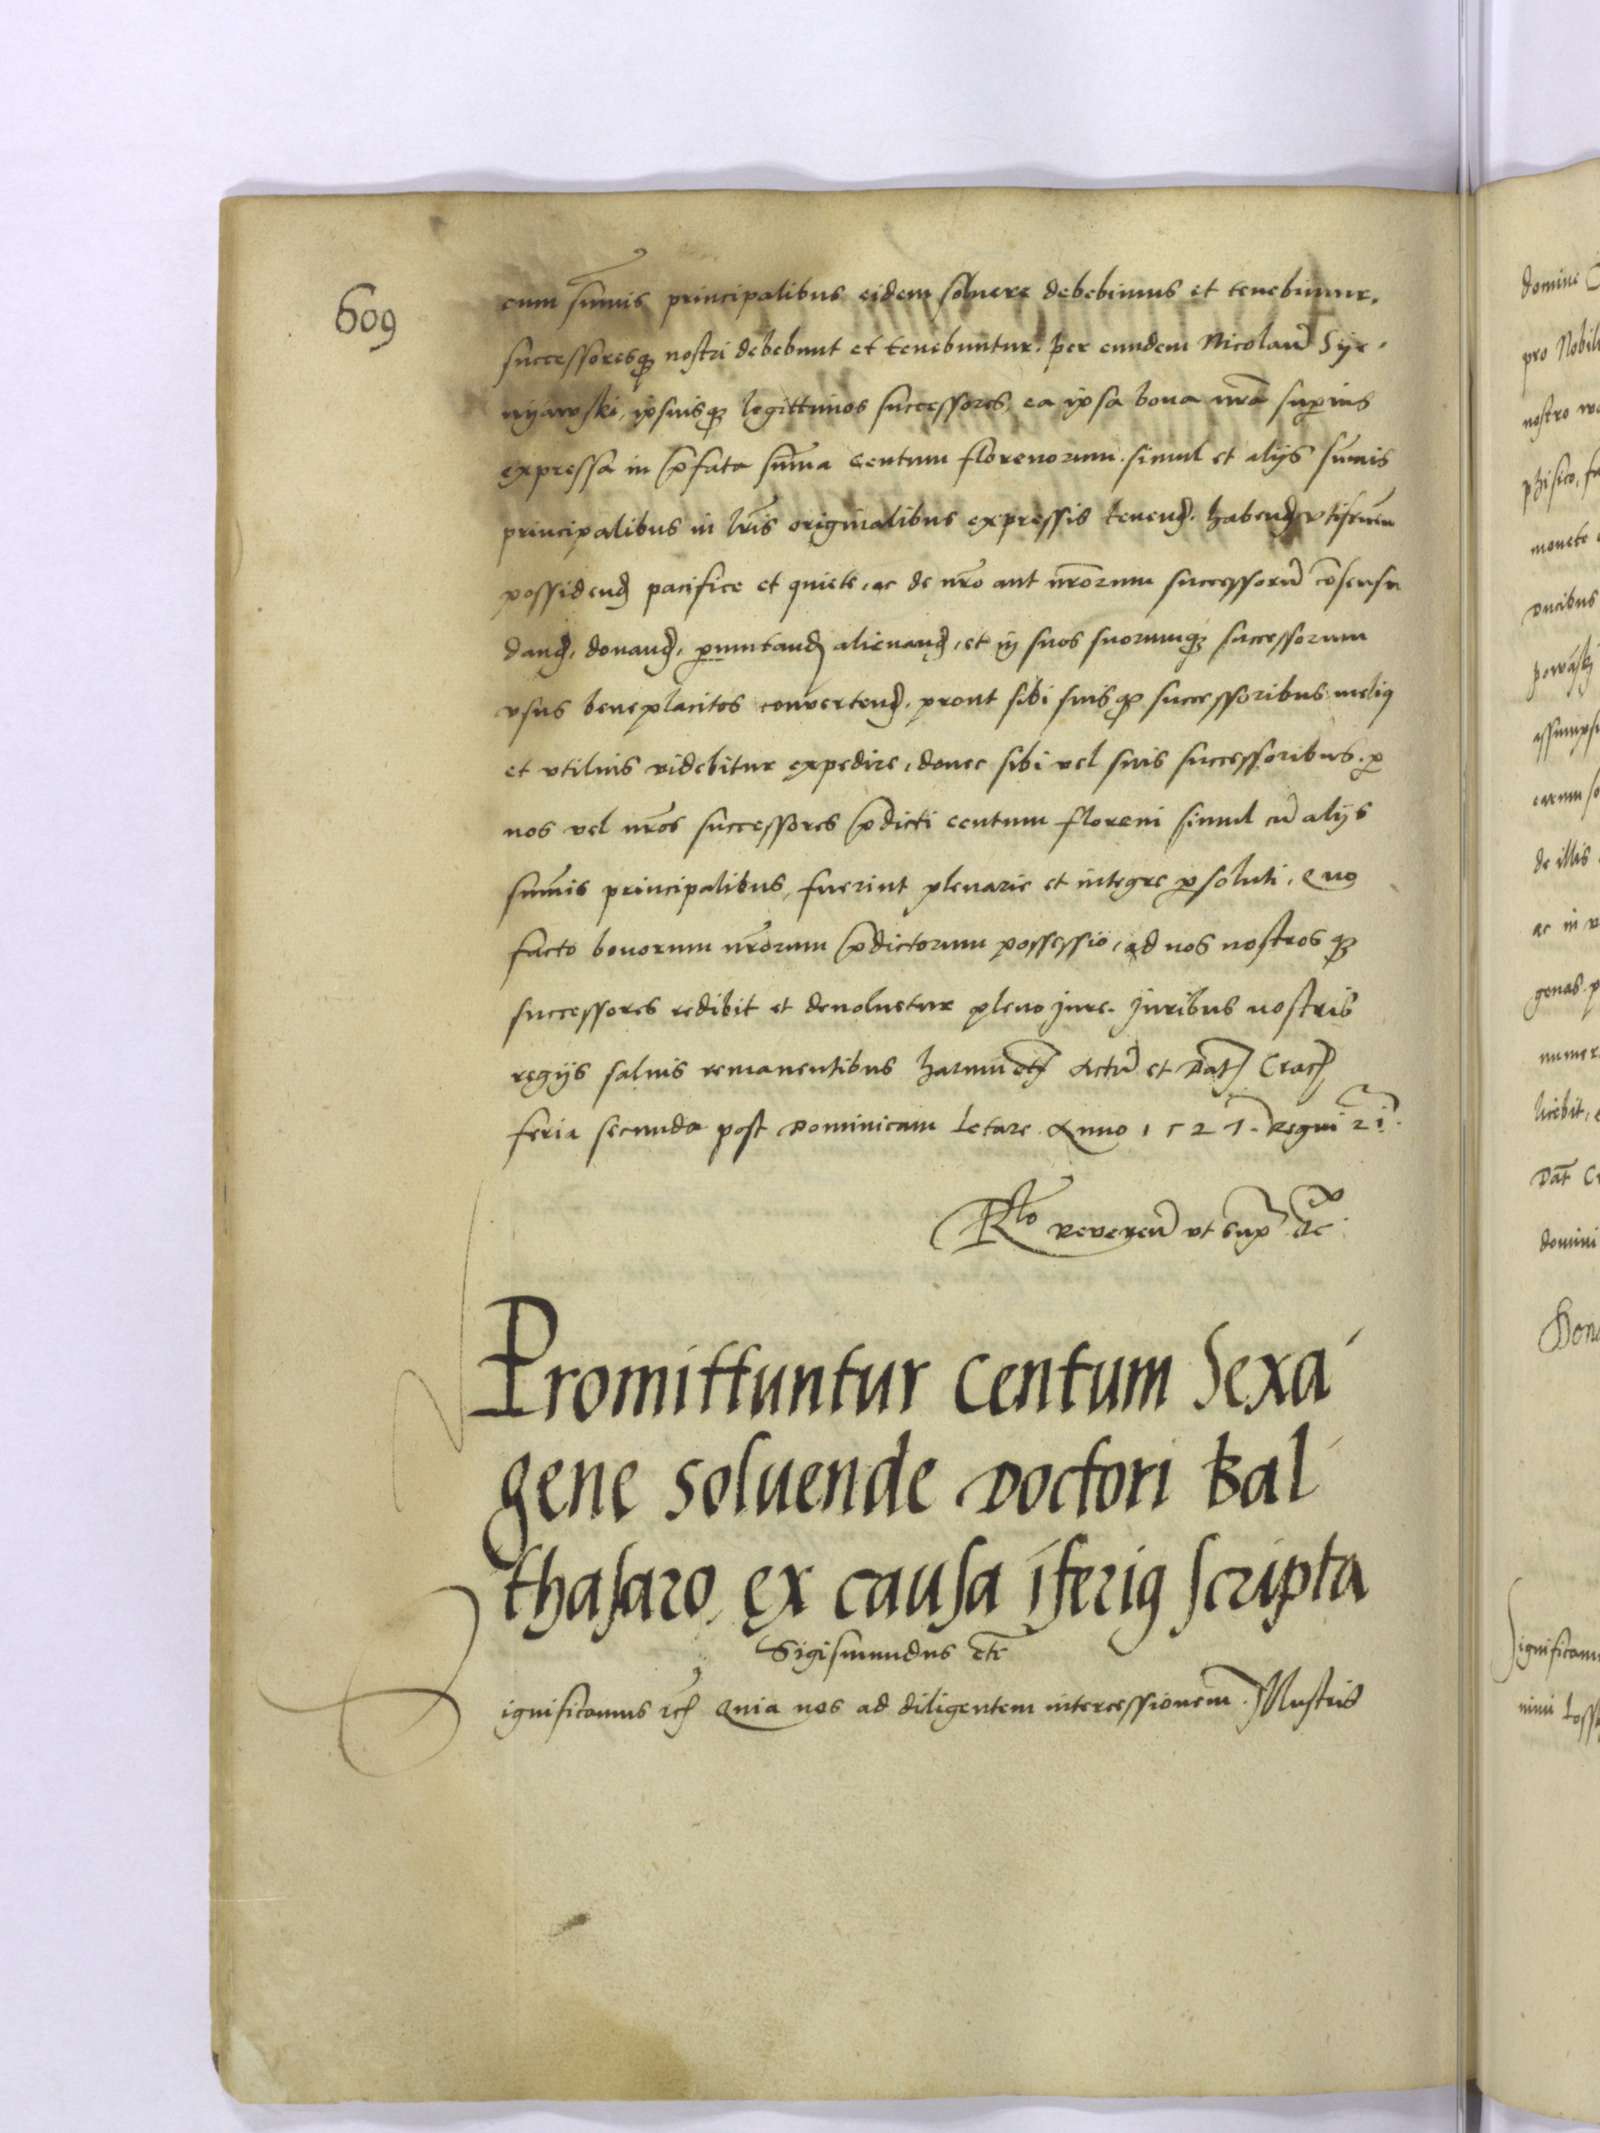 609
cum sum̄is principalibus eidem soluere debebimus et tenebimur.
successoresqȝ nostri debebunt et tenebuntur. per eundem Nicolaū Sye-
nyawski, ipsiusqȝ legittimos successores, ea ipsa bona nr̄a superius
expressa in p̄fata sum̄a centum florenorum. simul et alijs sum̄is
principalibus in lr̄is originalibus expressis tenend. habend vtifruen
possidend pacifice et quiete, ac de nr̄o aut nr̄orum successorū cōsensu
dand, donand, ꝑmutand alienand, et in suos suorumqȝ successorum
vsus beneplacitos convertend. prout sibi suisqȝ successoribus meliꝰ
et vtilius videbitur expedire, donec sibi vel suis successoribus. ꝑ
nos vel nr̄os successores p̄dicti centum floreni simul cū alijs
sum̄is principalibus, fuerint plenarie et integre ꝑsoluti, Quo
facto bonorum nr̄orum p̄dictorum possessio, ad nos nostrosqȝ
successores redibit et deuoluetur pleno jure. Juribus nostris
regijs saluis remanentibus harum etc Actū et Dat Crac
feria secunda post Dominicam Letare Anno 1527. Regni 21.
Rlo reveren vt supra etc
Promittuntur Centum Sexa-
gene soluende Doctori Bal-
thasaro, ex causa īferiꝰ scripta
Sigismundus etc
ignificamus etc Quia nos ad diligentem intercessionem Illustris
domine
pro Nobili
nostro
phisico, fa
monete
Ducibus
assumpsi
earum so
de illis
ac in
genas. p
numer
licebit,
Dat Cr
domini
Dona
Significam
nimi Loss